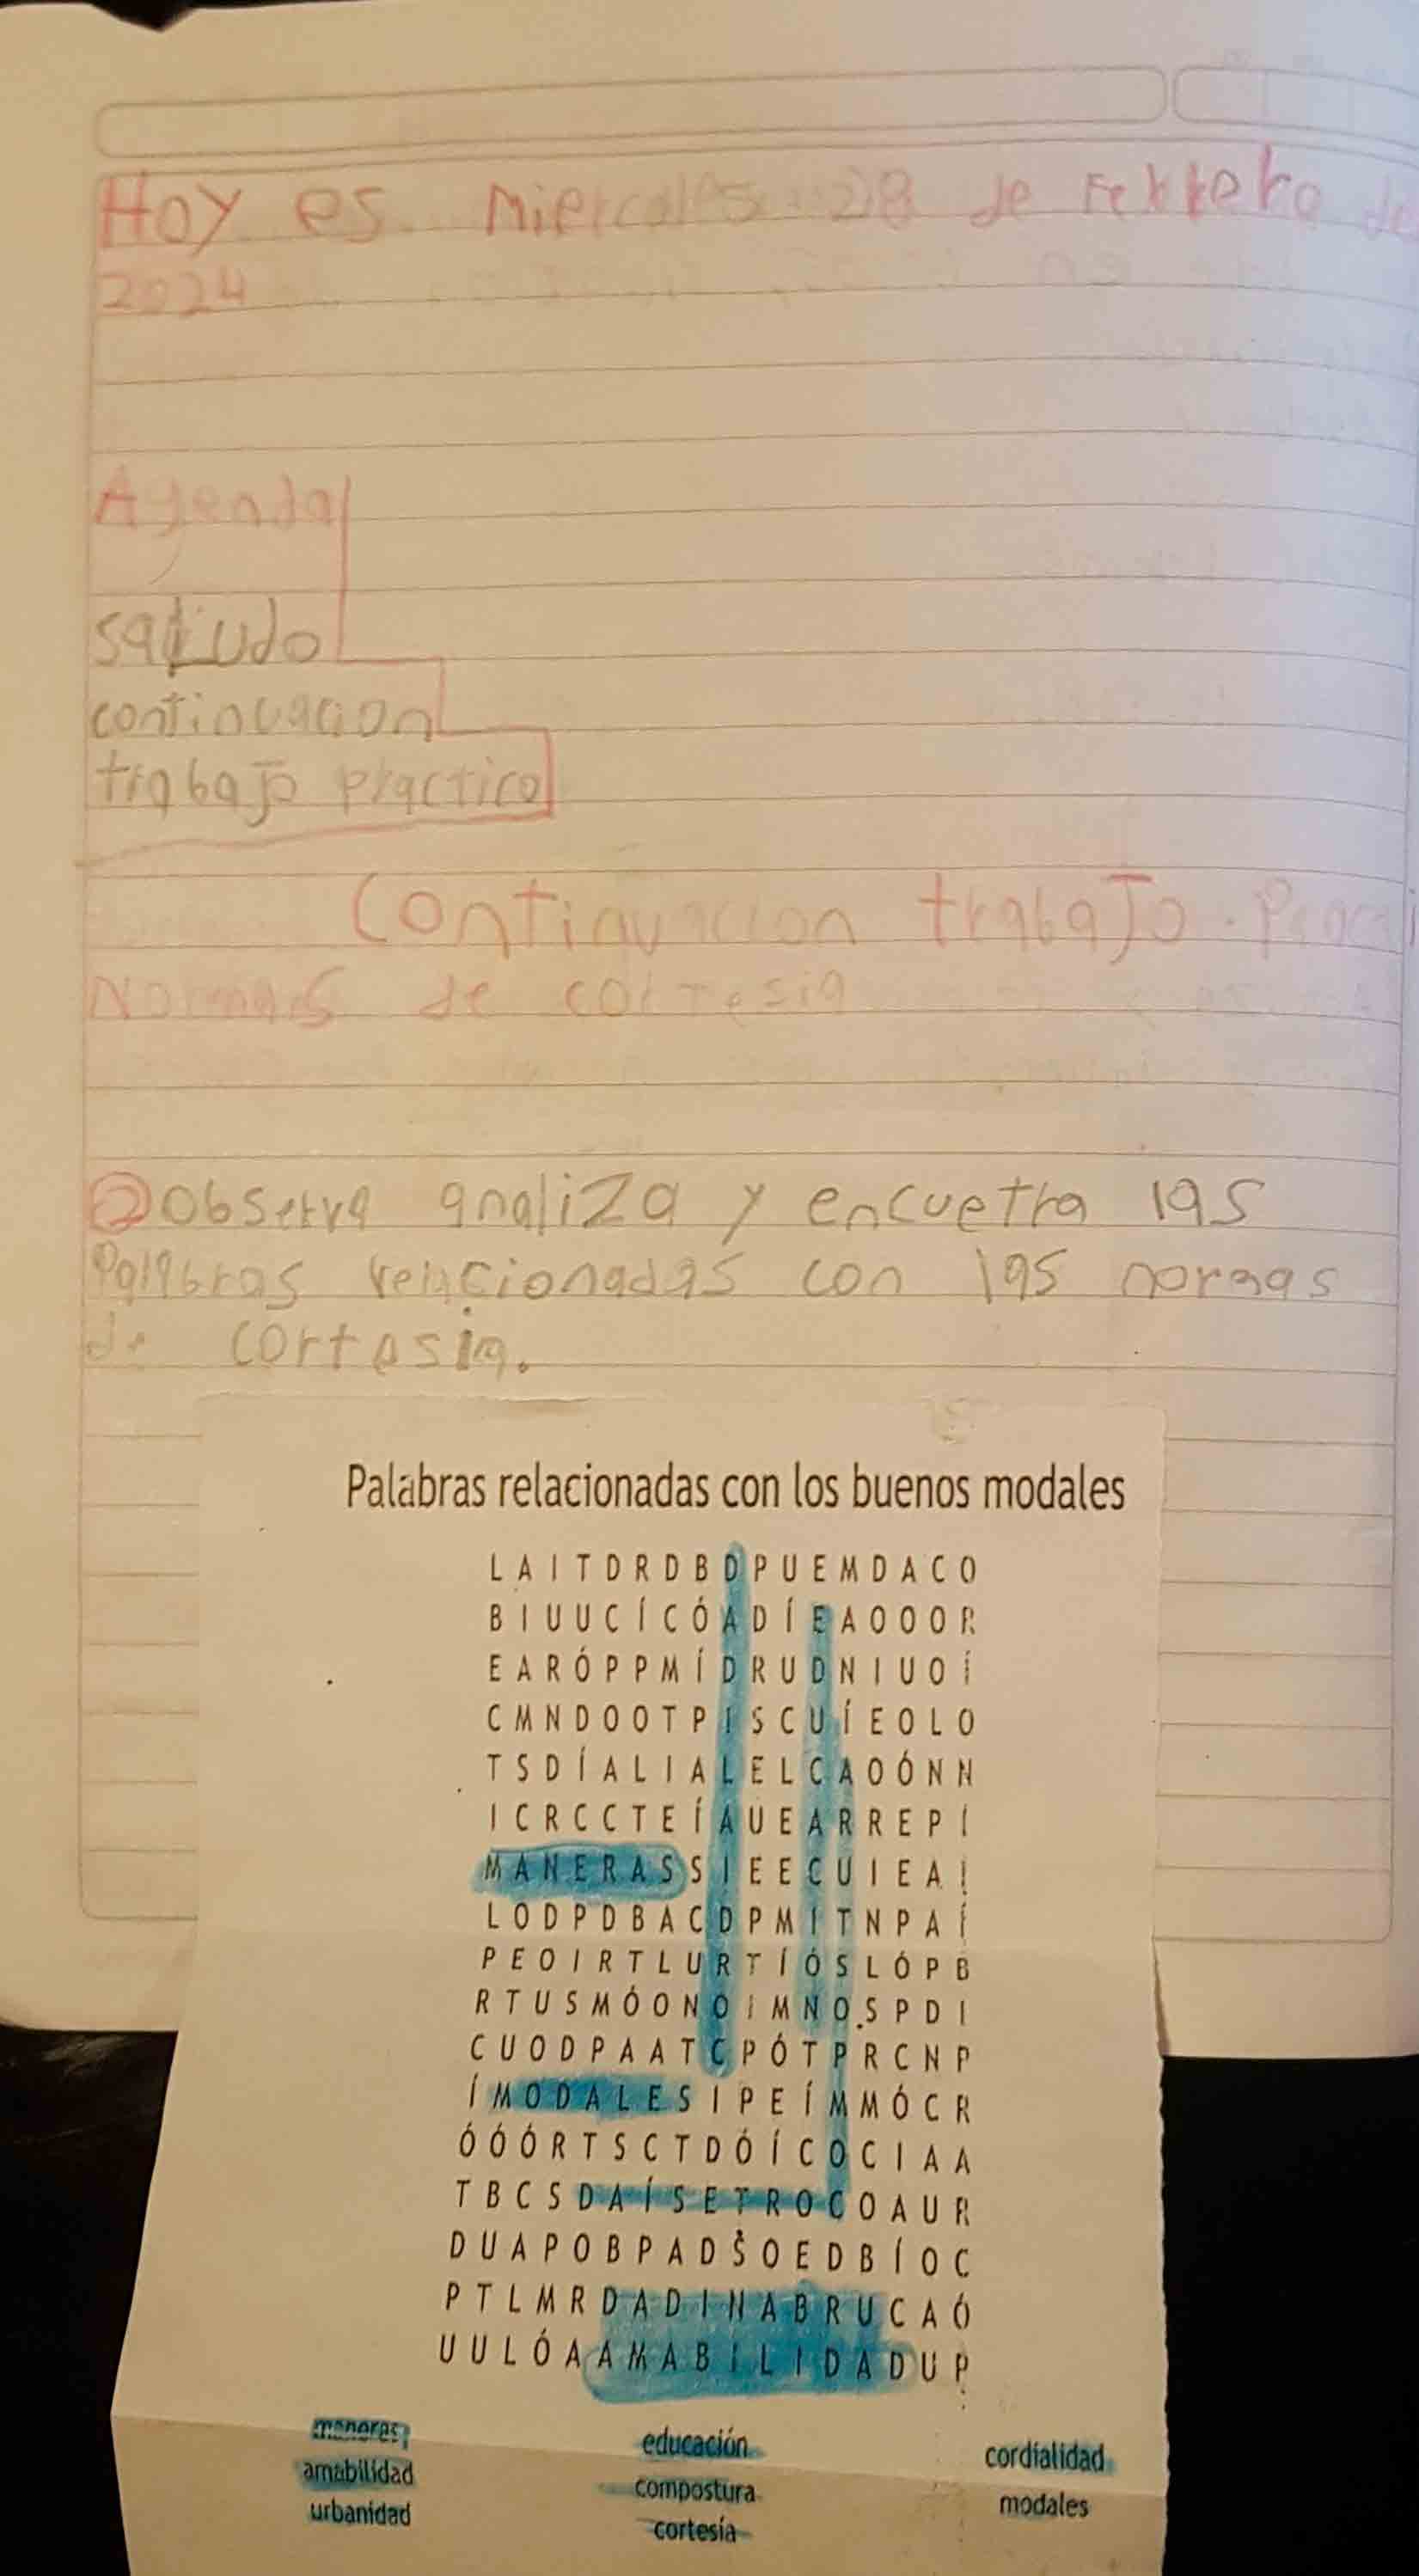 Hoy es miercoles 28 de Febrero de
2024
Agenda
saludo
continuacion
trabajo practico
Continuacion trabajo.
Normas de cortesia
2 Observa analiza y encuetra las
Palabras relacionadas con las normas
de cortesia.
Palabras relacionadas con los buenos modales
L A I T D R D B D P U E M D A C O
B I U U C Í C Ó A D Í E A O O O R
E A R Ó P P M Í D R U D N I U O Í
C M N D O O T P I S C U Í E O L O
T S D Í A L I A L E L C A O Ó N N
I C R C C T E Í A U E A R R E P Í
M A N E R A S S I E E C U I E A I
L O D P D B A C D P M I T N P A Í
P E O I R T L U R T Í Ó S L Ó P B
R T U S M Ó O N O I M N O S P D I
C U O D P A A T C P Ó T P R C N P
Í M O D A L E S I P E Í M M Ó C R
Ó Ó Ó R T S C T D Ó Í C O C I A A
T B C S D A Í S E T R O C O A U R
D U A P O B P A D S O E D B Í O C
P T L M R D A D I N A B R U C A Ó
U U L Ó A A M A B I L I D A D U P
maneras educación cordialidad
amabilidad compostura modales
urbanidad cortesía